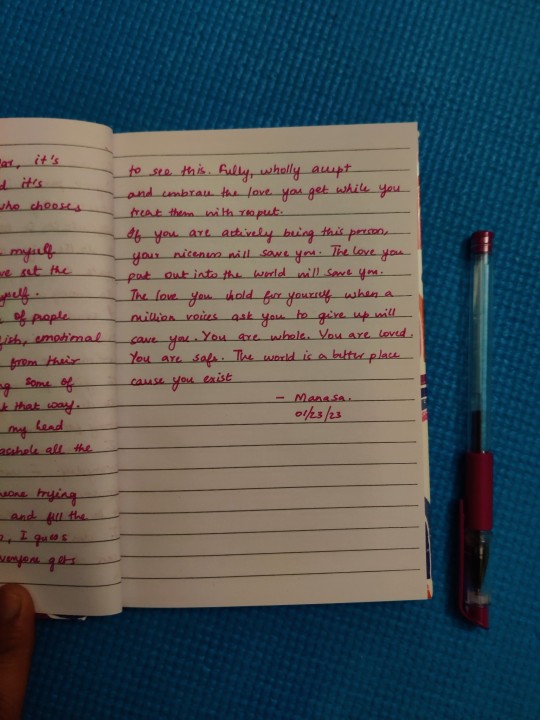 lar, it's
d it's
who chooses
myself
ve set the
yself.
of people
lish, emotional
from their
ng some of
k that way.
my head
asshole all the
meone trying
and fill the
, I guess
veryone gets
to see this. Fully, wholly accept
and embrace the love you get while you
treat them with respect.
If you are actively being this person,
your niceness will save you. The love you
put out into the world will save you.
The love you hold for yourself when a
million voices ask you to give up will
save you. You are whole. You are loved.
You are safe. The world is a better place
cause you exist
- Manasa.
01/23/23